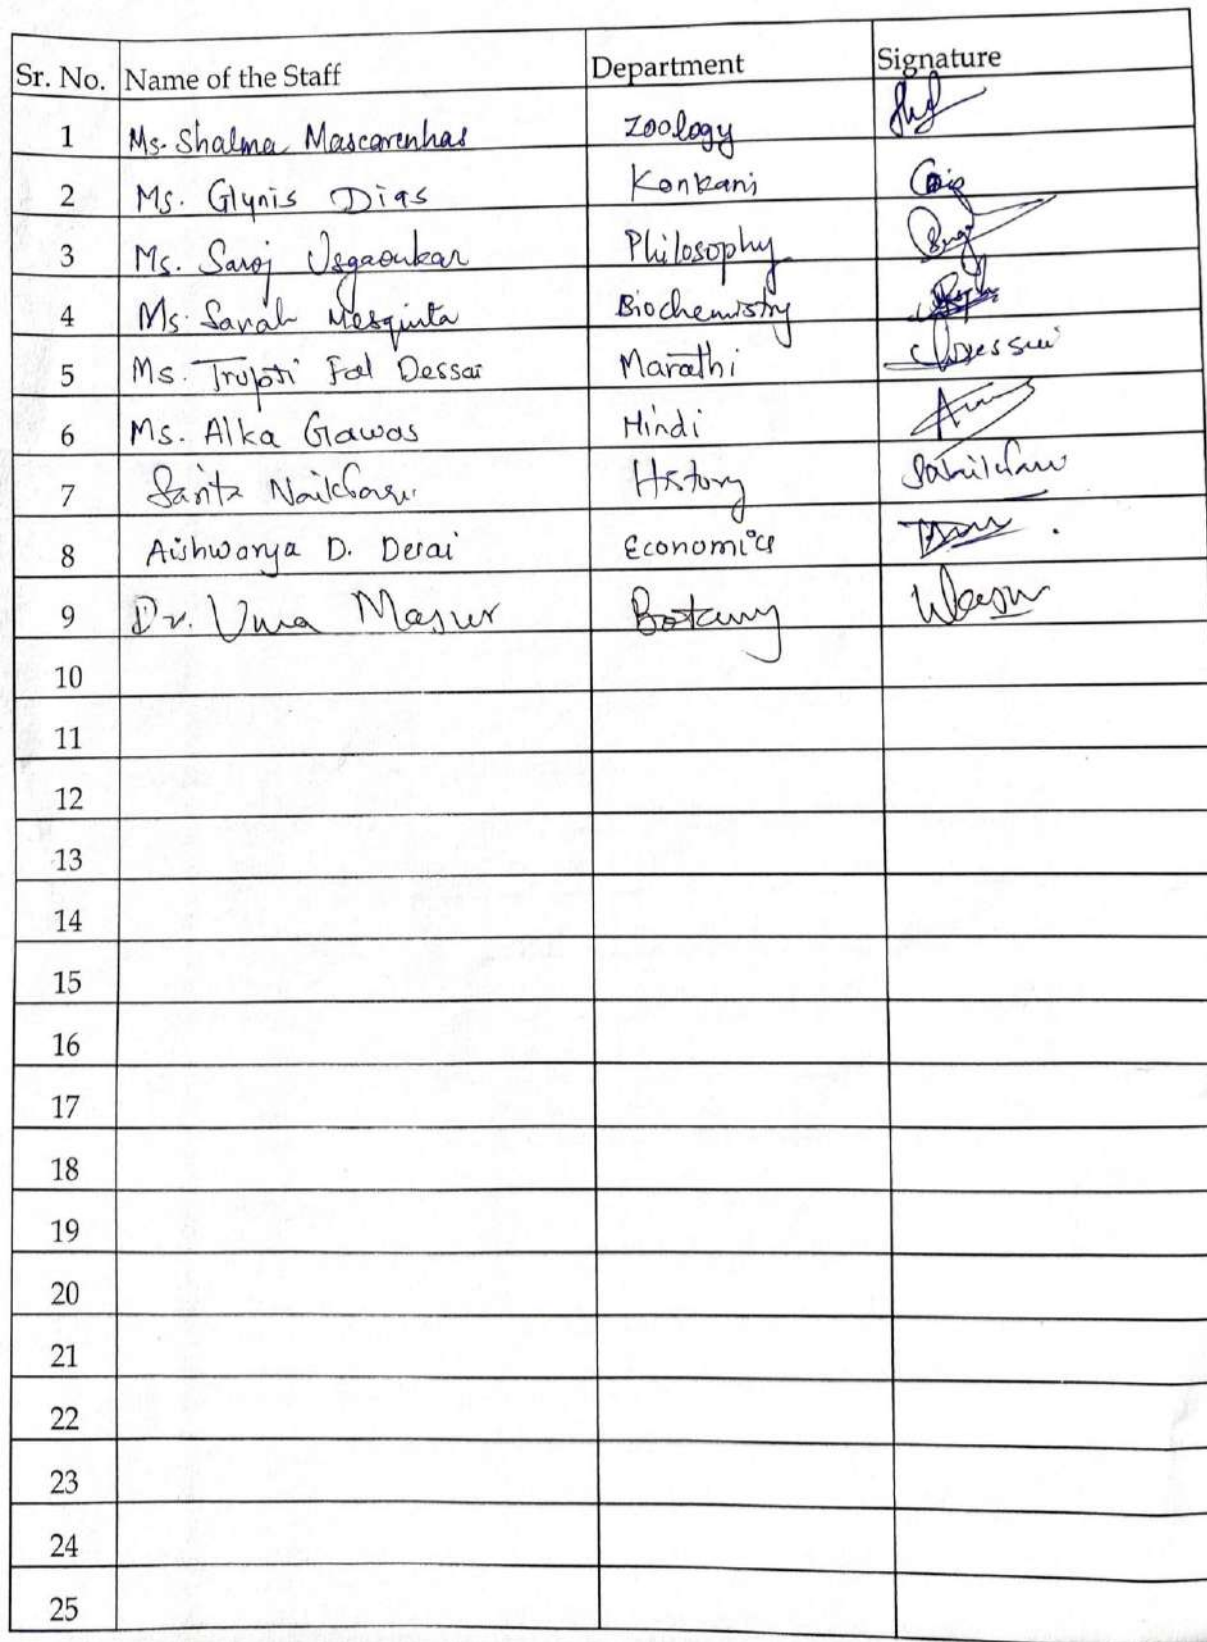 Sr. No. Name of the Staff Department Signature
1 Ms. Shalma Mascarenhas Zoology
2 Ms. Glynis Dias Konkani
3 Ms. Saroj Usgaonkar Philosophy
4 Ms. Sarah Mesquita Biochemistry
5 Ms. Trupti Fal Dessai Marathi
6 Ms. Alka Gawas Hindi
7 Sarita History
8 Aishwarya D. Desai Economics
9 Dr. Uma Masur Botany
10
11
12
13
14
15
16
17
18
19
20
21
22
23
24
25